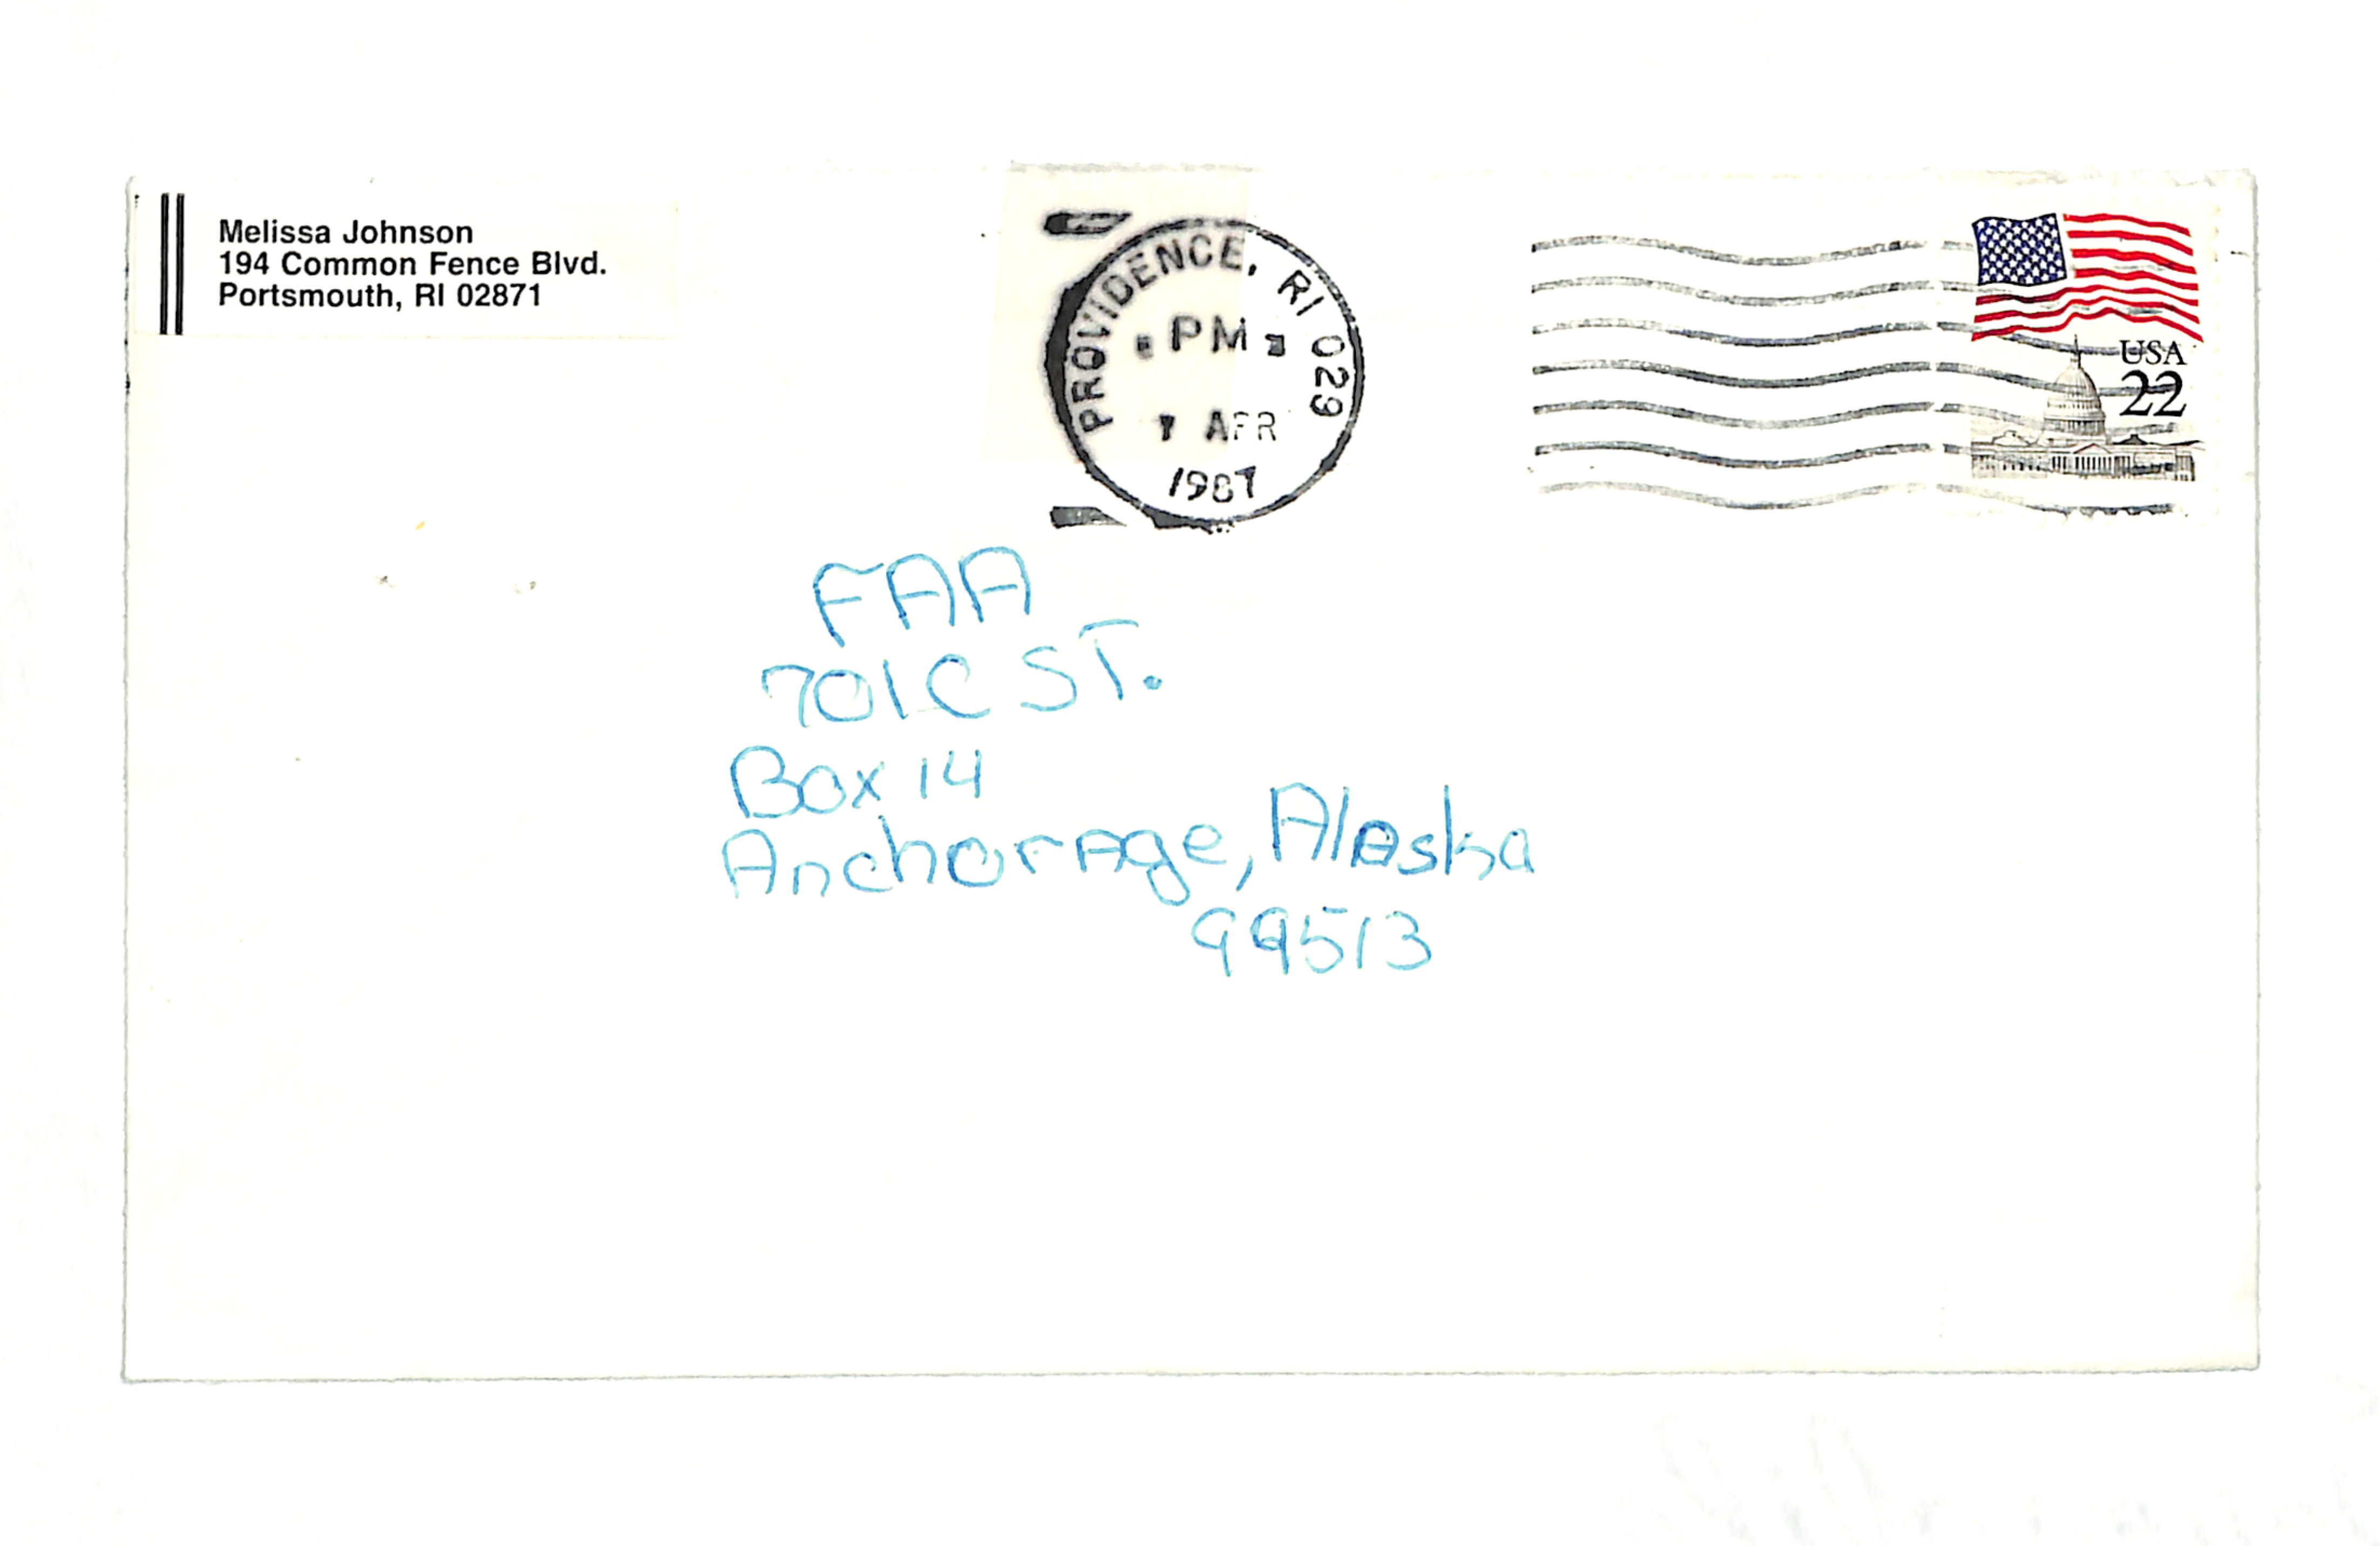 Melissa Johnson
194 Common Fence Blvd.
Portsmouth, RI 02871
PROVIDENCE, RI 029
PM
7 APR
1987
USA
22
FAA
701 C ST.
Box 14
Anchorage, Alaska
99513